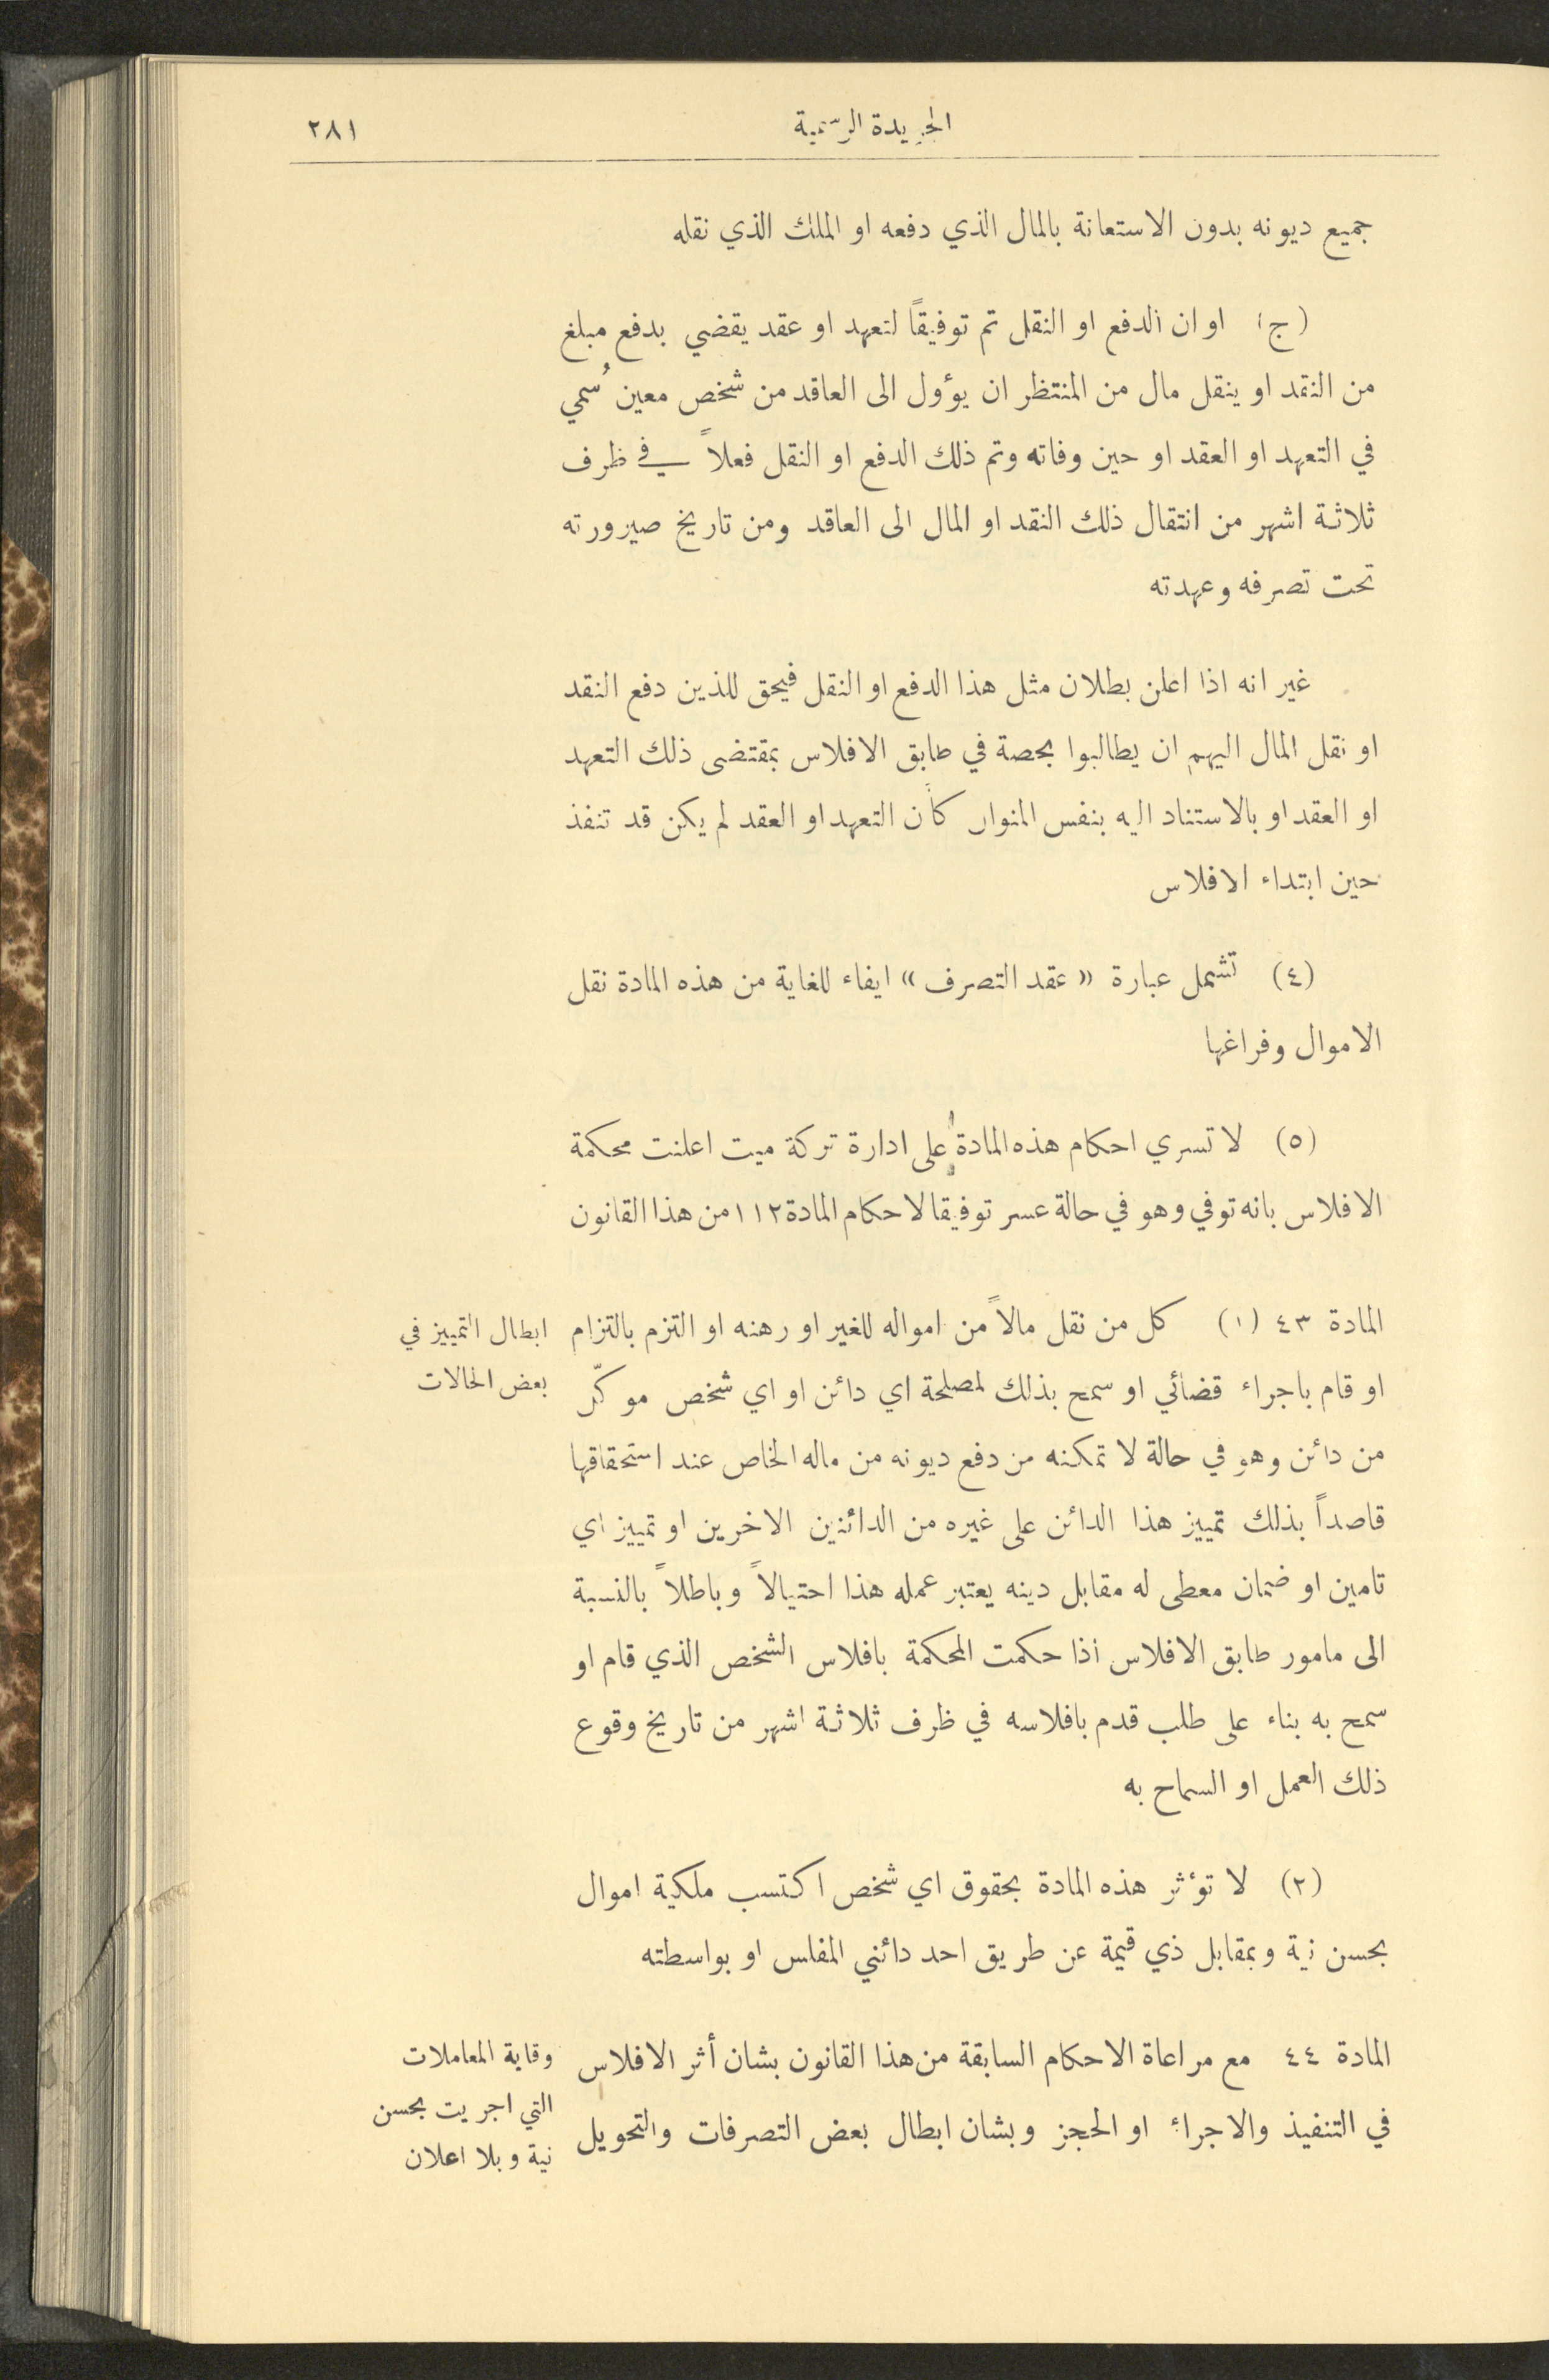 الجريدة الرسمية
٢٨١
جميع ديونه بدون الاستعانة بالمال الذي دفعه او الملك الذي نقله
(ج) او ان الدفع او النقل تم توفيقاً لتعهد او عقد يقضي بدفع مبلغ
من النقد او ينقل مال من المنتظر ان يؤول الى العاقد من شخص معين سُمي
في التعهد او العقد او حين وفاته وتم ذلك الدفع او النقل فعلاً في ظرف
ثلاثة اشهر من انتقال ذلك النقد او المال الى العاقد ومن تاريخ صيرورته
تحت تصرفه وعهدته
غير انه اذا اعلن بطلان مثل هذا الدفع او النقل فيحق للذين دفع النقد
او نقل المال اليهم ان يطالبوا بحصة في طابق الافلاس بمقتضى ذلك التعهد
او العقد او بالاستناد اليه بنفس المنوال كأن التعهد او العقد لم يكن قد تنفذ
حين ابتداء الافلاس
(٤) تشمل عبارة « عقد التصرف » ايفاء للغاية من هذه المادة نقل
الاموال وفراغها
(٥) لا تسري احكام هذه المادة على ادارة تركة ميت اعلنت محكمة
الافلاس بانه توفي وهو في حالة عسر توفيقا لاحكام المادة ١١٢ من هذا القانون
ابطال التمييز في
بعض الحالات
المادة ٤٣ (١) كل من نقل مالاً من امواله للغير او رهنه او التزم بالتزام
او قام باجراء قضائي او سمح بذلك لمصلحة اي دائن او اي شخص موكّل
من دائن وهو في حالة لا تمكنه من دفع ديونه من ماله الخاص عند استحقاقها
قاصداً بذلك تمييز هذا الدائن على غيره من الدائنين الاخرين او تمييز اي
تامين او ضمان معطى له مقابل دينه يعتبر عمله هذا احتيالاً وباطلاً بالنسبة
الى مامور طابق الافلاس اذا حكمت المحكمة بافلاس الشخص الذي قام او
سمح به بناء على طلب قدم بافلاسه في ظرف ثلاثة اشهر من تاريخ وقوع
ذلك العمل او السماح به
(٢) لا تؤثر هذه المادة بحقوق اي شخص اكتسب ملكية اموال
بحسن نية وبمقابل ذي قيمة عن طريق احد دائني المفلس او بواسطته
وقاية المعاملات
التي اجريت بحسن
نية وبلا اعلان
المادة ٤٤ مع مراعاة الاحكام السابقة من هذا القانون بشان أثر الافلاس
في التنفيذ والاجراء او الحجز وبشان ابطال بعض التصرفات والتحويل